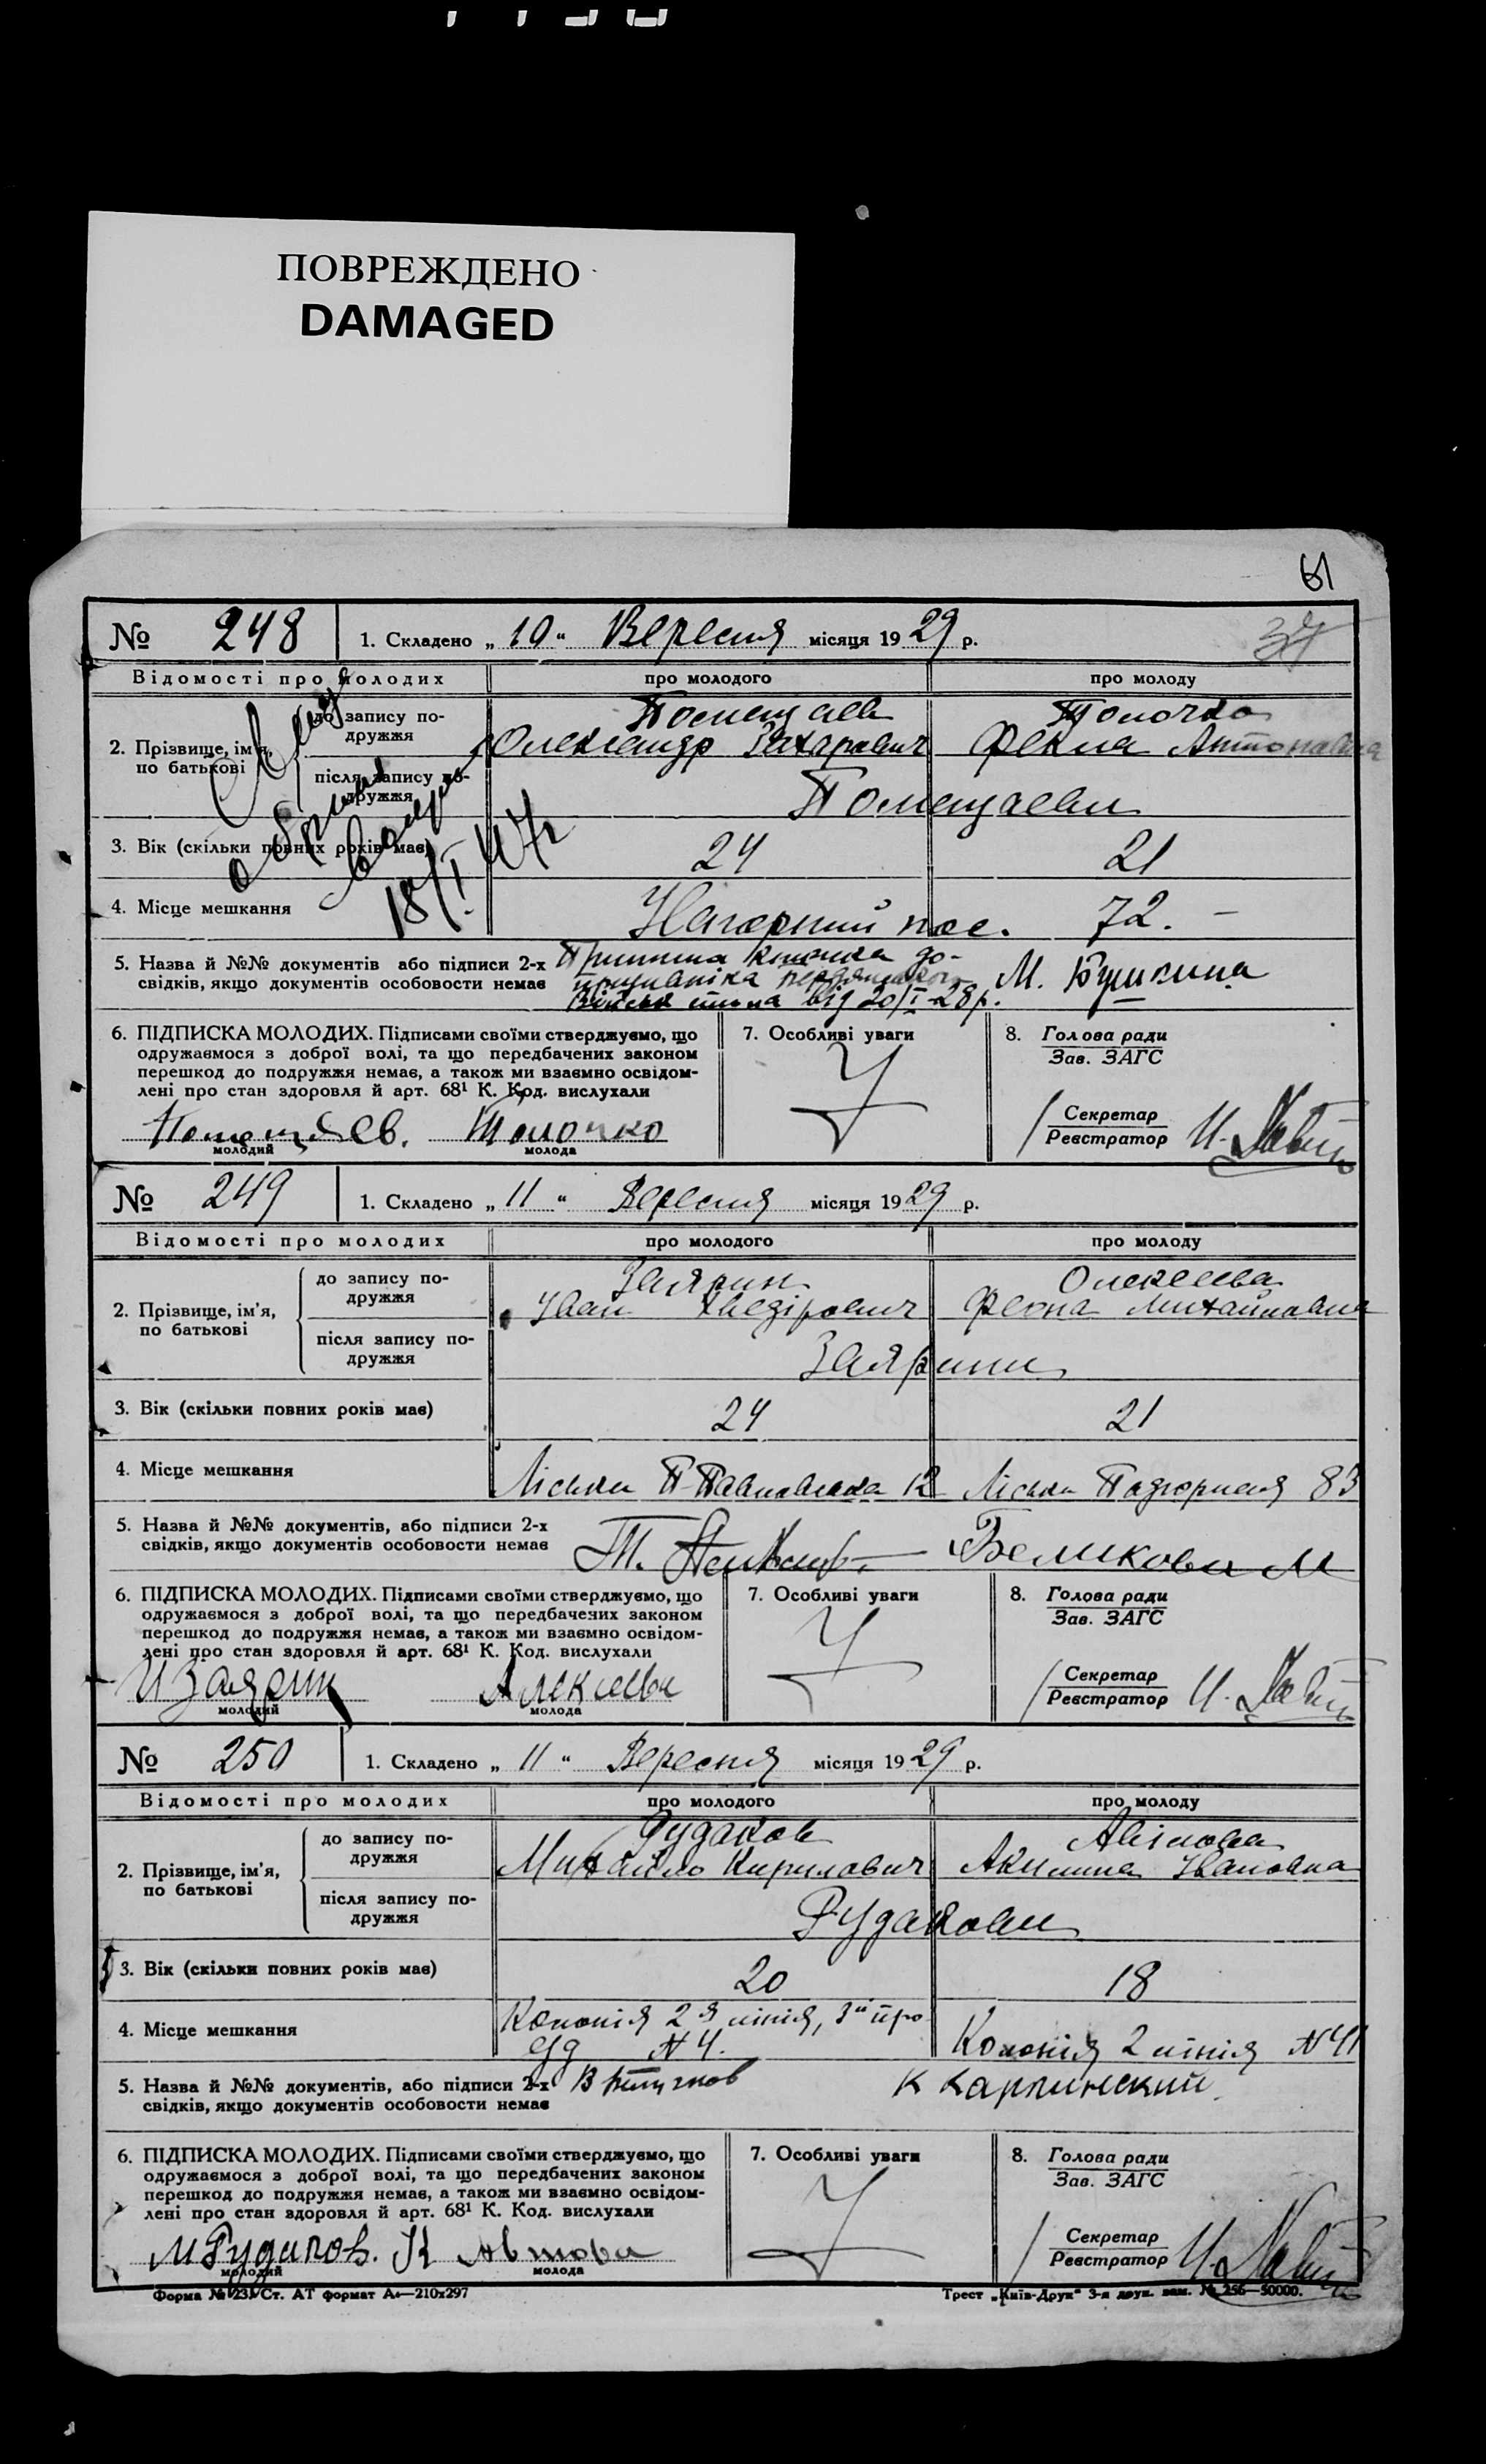 ПОВРЕЖДЕНО
DAMAGED
61
37
№ 248 1. Складено „ 10 “ Вересня місяця 1929 р.
Відомості про молодих про молодого про молоду
2. Прізвище, ім'я, по батькові
до запису по-
дружжя
Помещаєв Толочко
Олександр Захарович Фекла Антоновна
після запису по-
дружжя
Помещаєви
3. Вік (скільки повних років має) 24 21
18/I 47г
4. Місце мешкання Нагорний пос. 72. –
5. Назва й №№ документів або підписи 2-х
свідків, якщо документів особовости немає
від 20/I-28р. М. Бушкина
6. ПІДПИСКА МОЛОДИХ. Підписами своїми стверджуємо, що
одружаємося з доброї волі, та що передбачених законом
перешкод до подружжя немає, а також ми взаємно освідом-
лені про стан здоровля й арт. 68¹ К. Код. вислухали
Помещаев. Толочко
молодий молода
7. Особливі уваги
8. Голова ради
Зав. ЗАГС
Секретар
Реєстратор
№ 249 1. Складено „ 11 “ Вересня місяця 1929 р.
Відомості про молодих про молодого про молоду
2. Прізвище, ім'я,
по батькові
до запису по-
дружжя
Заярин Олексєєва
Іван Хведірович Феона Михайловна
після запису по-
дружжя
Заярини
3. Вік (скільки повних років має) 24 21
4. Місце мешкання Ліськи П-Павловська 12 Ліськи Подгорная 83
5. Назва й №№ документів, або підписи 2-х
свідків, якщо документів особовости немає
Беликова М
6. ПІДПИСКА МОЛОДИХ. Підписами своїми стверджуємо, що
одружаємося з доброї волі, та що передбачених законом
перешкод до подружжя немає, а також ми взаємно освідом-
лені про стан здоровля й арт. 68¹ К. Код. вислухали
И Заярин Алексеева
молодий молода
7. Особливі уваги
8. Голова ради
Зав. ЗАГС
Секретар
Реєстратор
№ 250 1. Складено „ 11 “ Вересня місяця 1929 р.
Відомості про молодих про молодого про молоду
2. Прізвище, ім'я,
по батькові
до запису по-
дружжя
Рудаков
Михайло Кирилович Акилина Івановна
після запису по-
дружжя
Рудакови
3. Вік (скільки повних років має) 20 18
4. Місце мешкання
Колонія 2я лінія, 3й про
їзд N 4. Колонія 2 лінія N 41
5. Назва й №№ документів, або підписи 2-х
свідків, якщо документів особовости немає
К Карпинский
6. ПІДПИСКА МОЛОДИХ. Підписами своїми стверджуємо, що
одружаємося з доброї волі, та що передбачених законом
перешкод до подружжя немає, а також ми взаємно освідом-
лені про стан здоровля й арт. 68¹ К. Код. вислухали
М Рудаков.
молодий молода
7. Особливі уваги
8. Голова ради
Зав. ЗАГС
Секретар
Реєстратор
Форма № 23. Ст. АТ формат А₄—210х297
Трест „Київ-Друк“ 3-я друк. зам. № 256—50000.